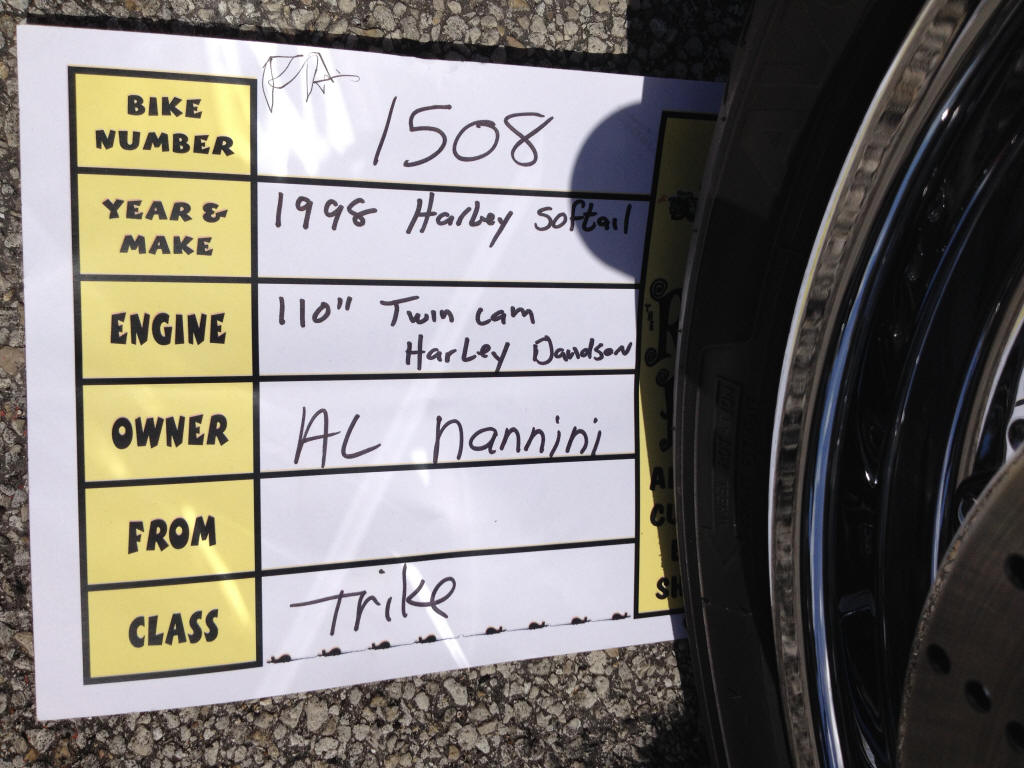 BIKE NUMBER
1508
YEAR & MAKE
1998 Harley Softail
ENGINE
110" Twin cam
Harley Davidson
OWNER
AL Nannini
FROM
CLASS
Trike